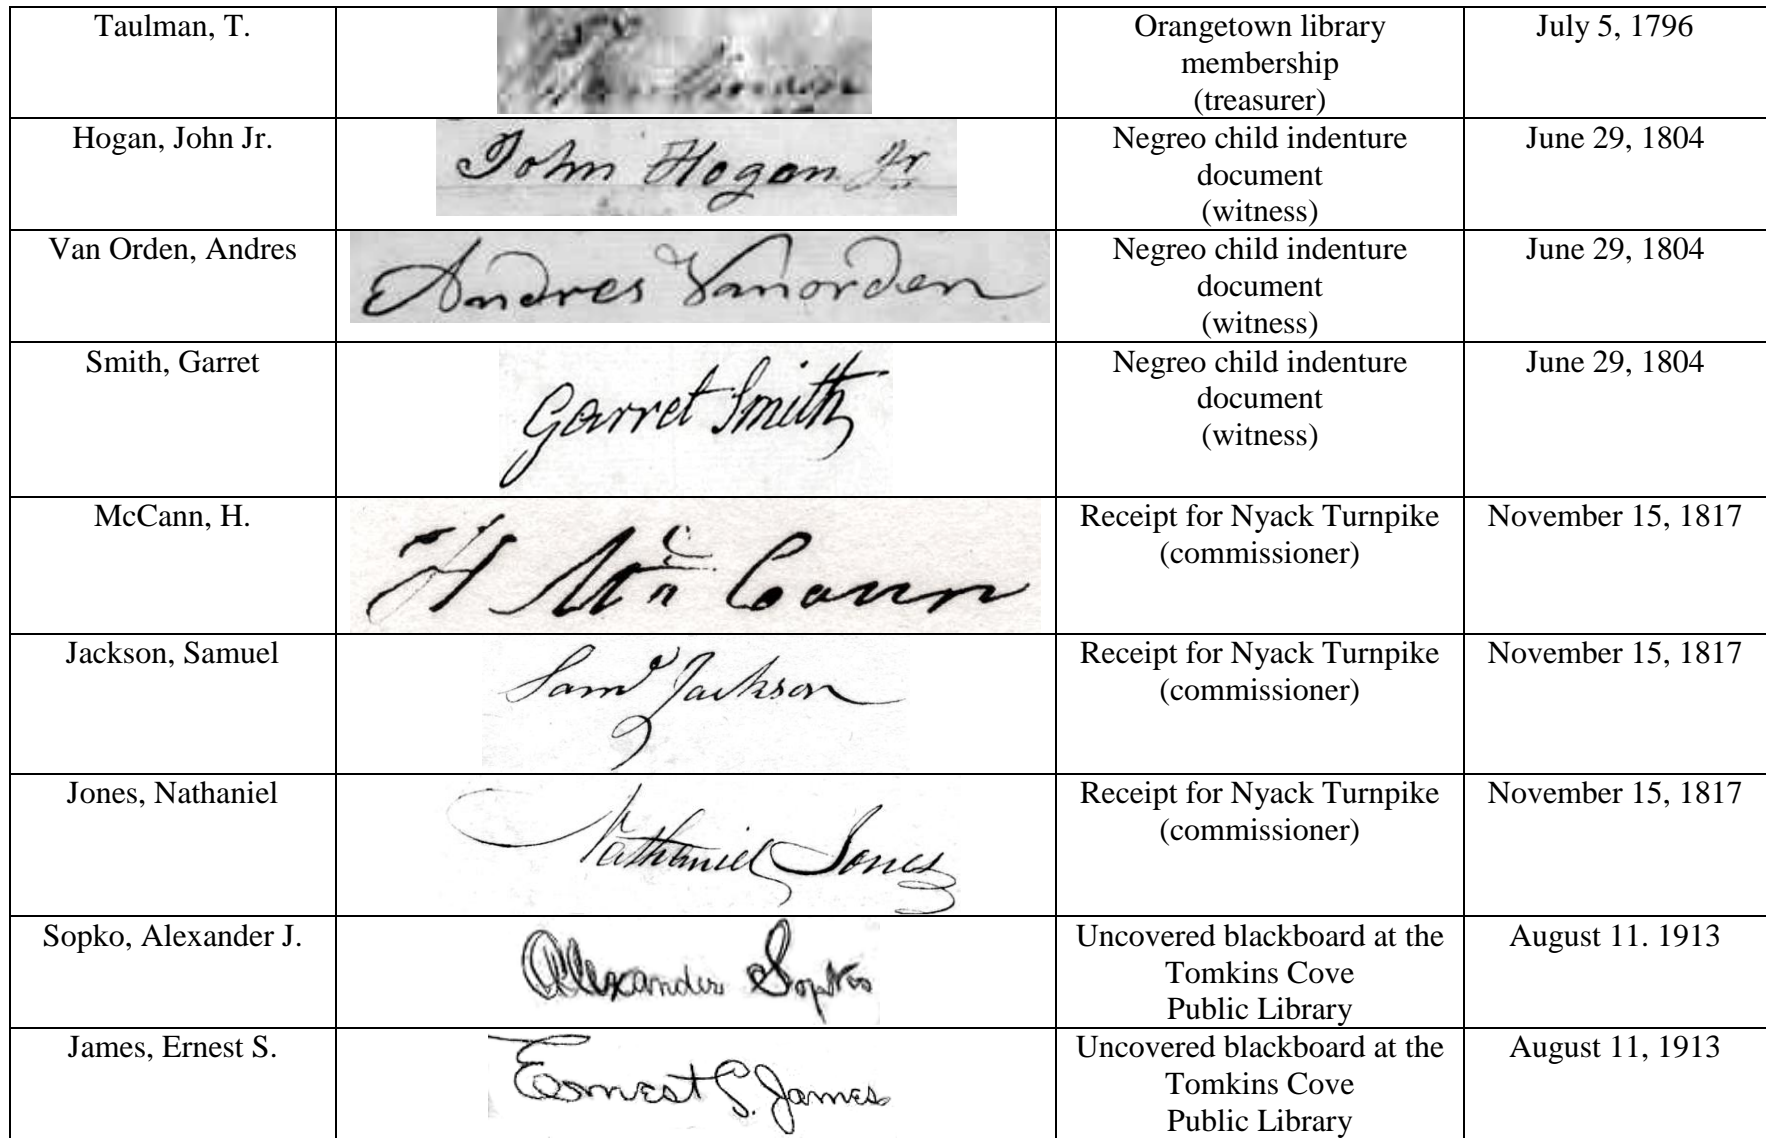 Taulman, T.
Orangetown library
membership
(treasurer)
July 5, 1796
Hogan, John Jr.
John Hogan Jr
Negreo child indenture
document
(witness)
June 29, 1804
Van Orden, Andres
Andres Vanorden
Negreo child indenture
document
(witness)
June 29, 1804
Smith, Garret
Garret Smith
Negreo child indenture
document
(witness)
June 29, 1804
McCann, H.
H Mc Cann
Receipt for Nyack Turnpike
(commissioner)
November 15, 1817
Jackson, Samuel
Saml Jackson
Receipt for Nyack Turnpike
(commissioner)
November 15, 1817
Jones, Nathaniel
Nathaniel Jones
Receipt for Nyack Turnpike
(commissioner)
November 15, 1817
Sopko, Alexander J.
Alexander Sopko
Uncovered blackboard at the
Tomkins Cove
Public Library
August 11. 1913
James, Ernest S.
Ernest S. James
Uncovered blackboard at the
Tomkins Cove
Public Library
August 11, 1913